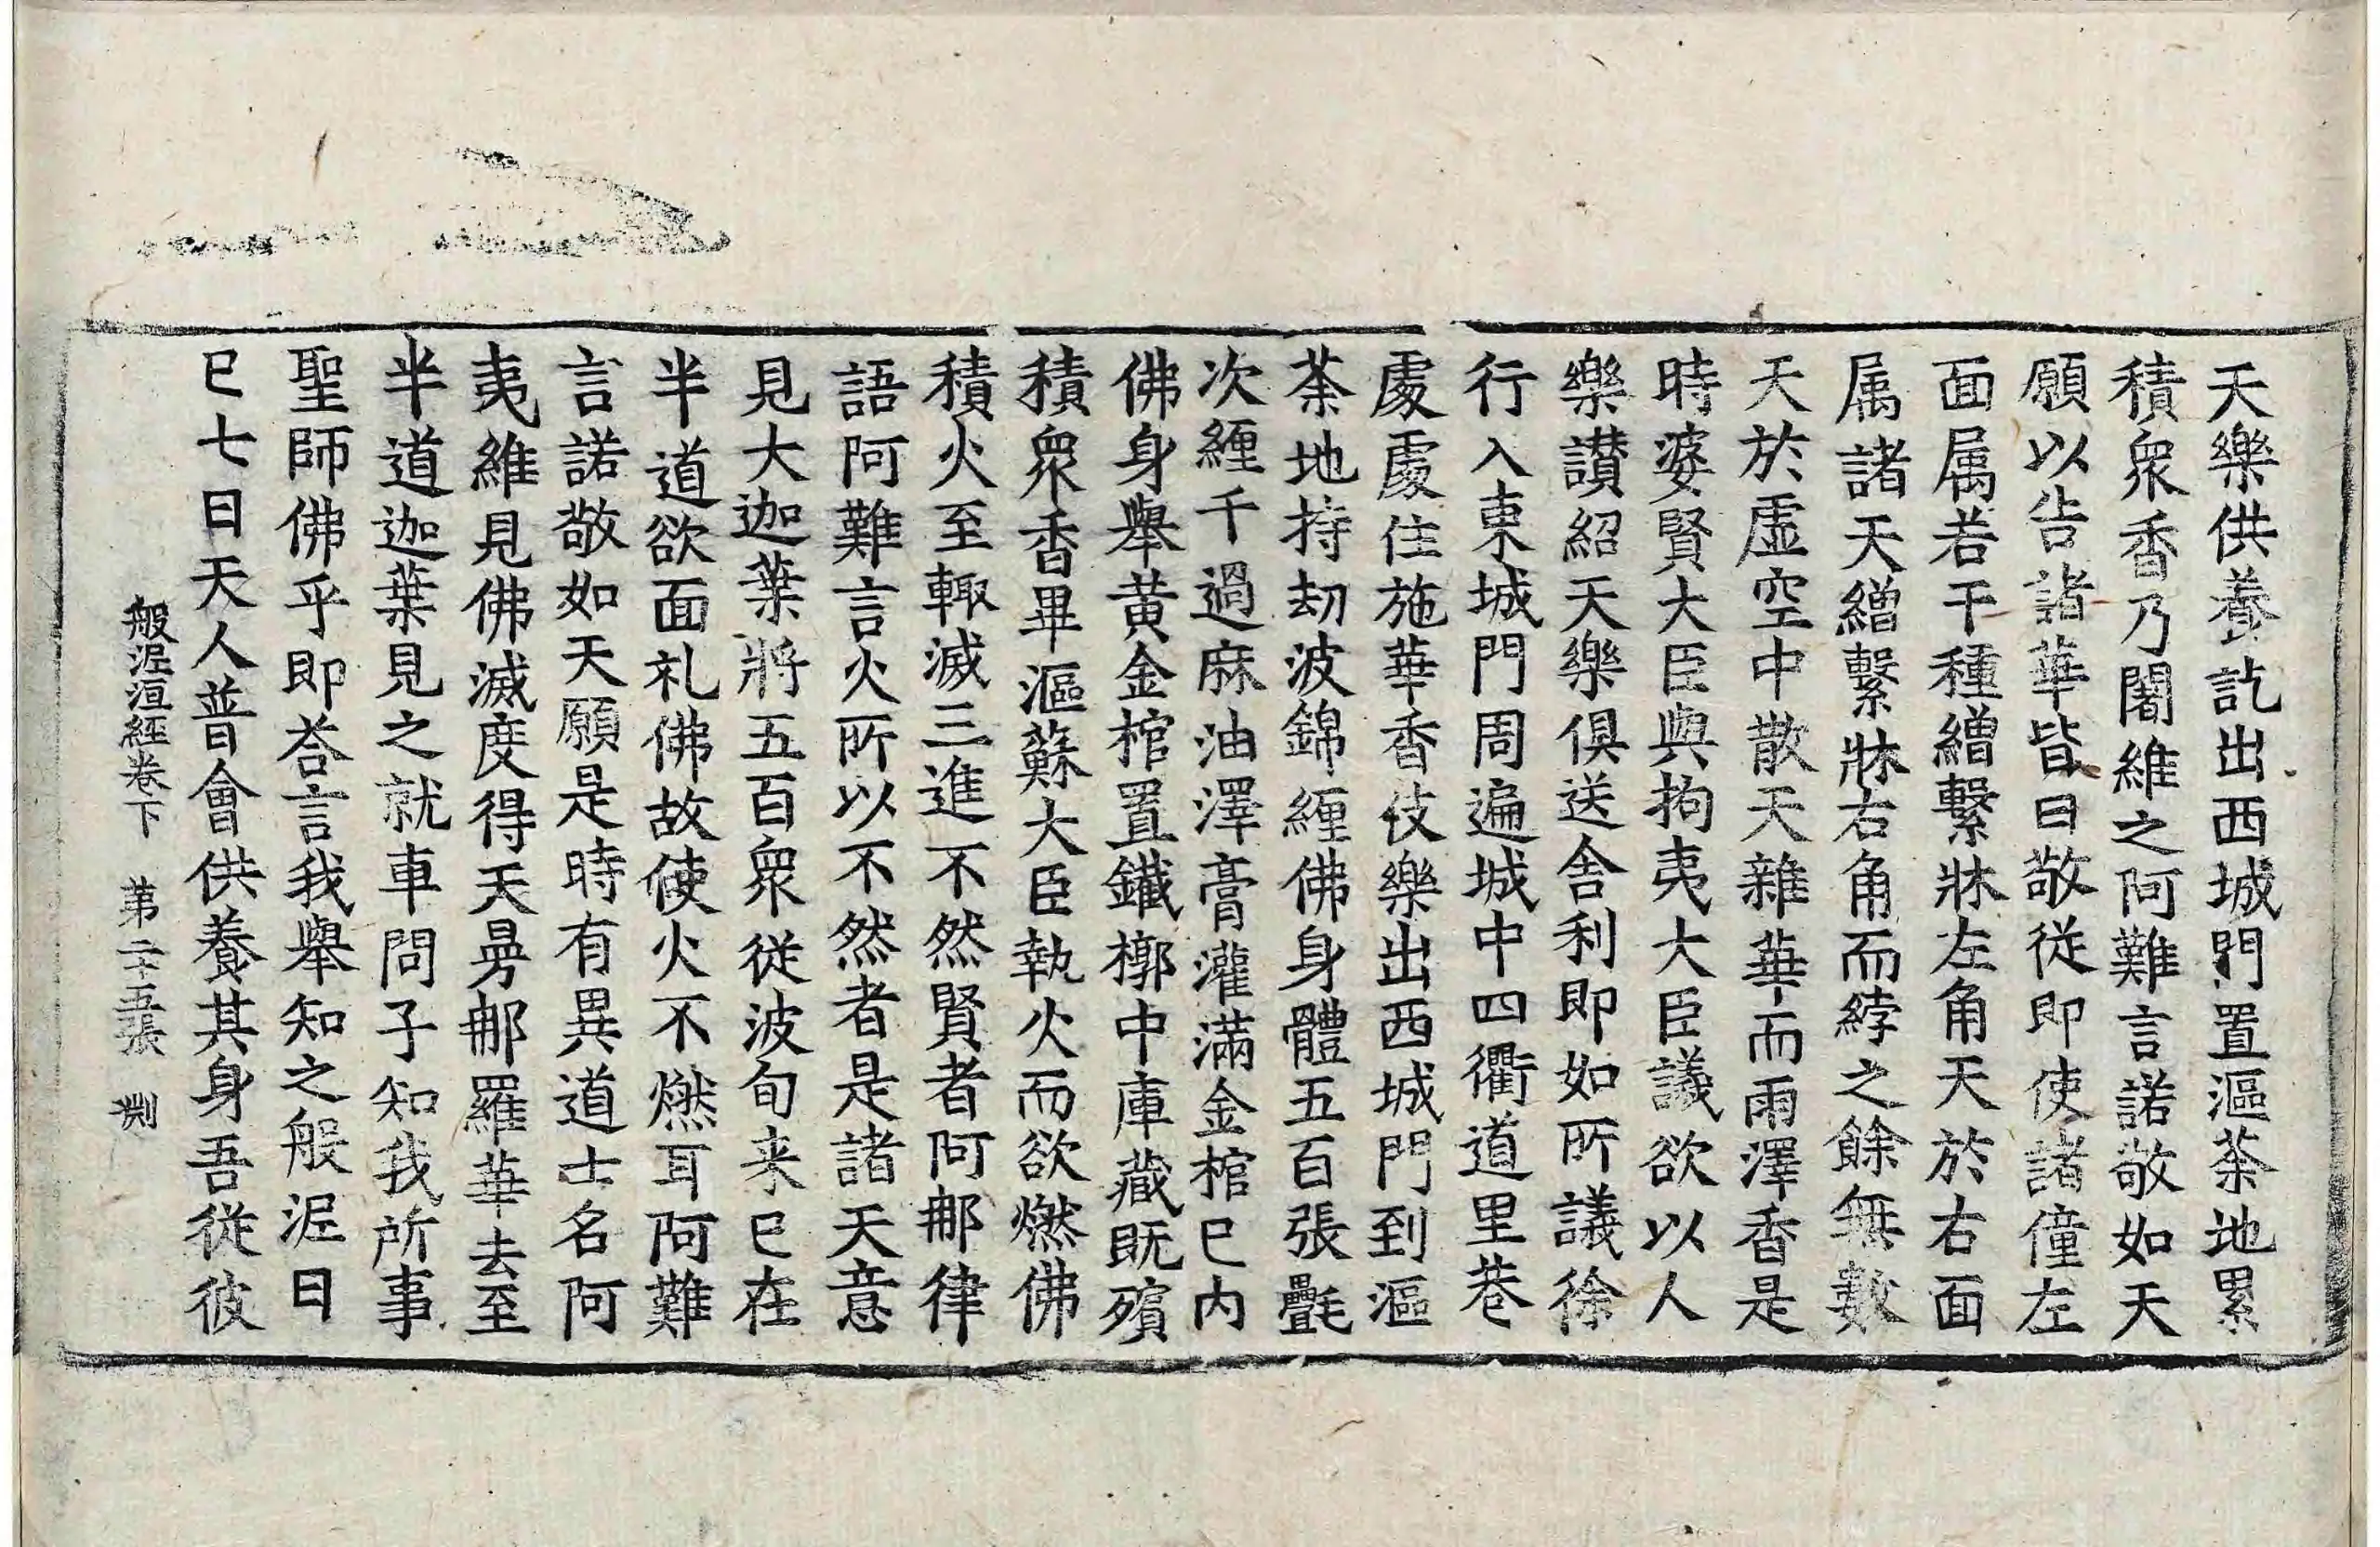 天樂供養訖出西城門置漚茶地累
積衆香乃闍維之阿難言諾敬如天
願以告諸華皆曰敬從即使諸僮左
面属若干種繒繫牀左角天於右面
属諸天繒繫牀右角而綍之餘無數
天於虛空中散天雜華而雨澤香是
時婆賢大臣與拘夷大臣議欲以人
樂讃紹天樂俱送舍利即如所議徐
行入東城門周遍城中四衢道里巷
處處住施華香伎樂出西城門到漚
茶地持劫波錦纏佛身體五百張㲲
次纏千過麻油澤膏灌滿金棺已內
佛身舉黃金棺置鐵槨中庫藏旣殯
積衆香畢漚蘇大臣執火而欲燃佛
積火至輙滅三進不然賢者阿那律
語阿難言火所以不然者是諸天意
見大迦葉將五百衆從波旬来已在
半道欲面礼佛故使火不燃耳阿難
言諾敬如天願是時有異道士名阿
夷維見佛滅度得天曼那羅華去至
半道迦葉見之就車問子知我所事
聖師佛乎即荅言我舉知之般泥曰
已七日天人普會供養其身吾從彼
般泥洹經卷下　苐二十五張　渕